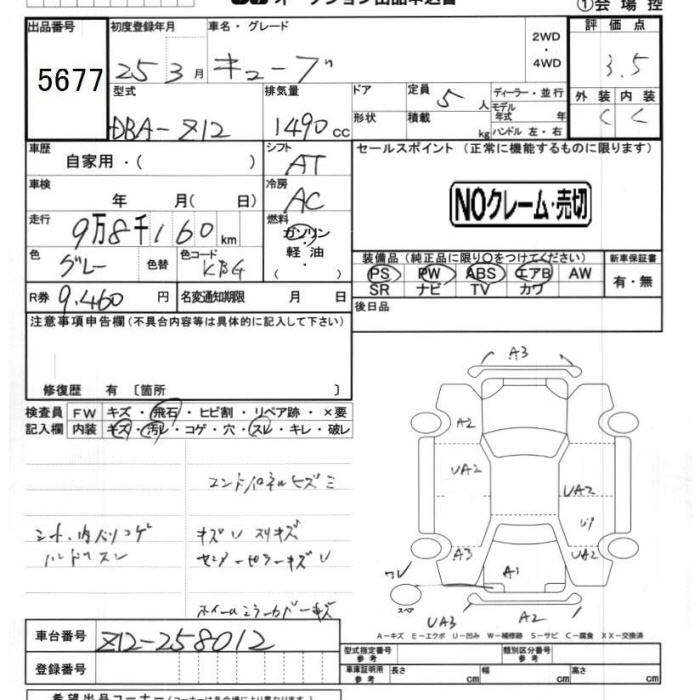 ①会場控
出品番号 初度登録年月 車名・グレード 2WD・4WD 評価点
5677 25 3月 キューブ 3.5
型式 排気量 ドア 定員 5人 ディーラー・並行 外装 内装
DBA-Z12 1490cc 形状 積載 kg モデル年式 年 ハンドル 左・右 C C
車歴 自家用・( ) シフト AT セールスポイント (正常に機能するものに限ります)
車検 年 月( 日) 冷房 AC
NOクレーム・売切
走行 9万8千160km 燃料 ガソリン・軽油・( )
色 グレー 色替 色コード KBG
装備品(純正品に限り○をつけてください) 新車保証書
PS PW ABS エアB AW 有・無
SR ナビ TV カワ
R券 9,460円 名変通知期限 月 日 後日品
注意事項申告欄(不具合内容等は具体的に記入して下さい)
修復歴 有〔箇所 〕
検査員 FW キズ・飛石・ヒビ割・リペア跡・×要
記入欄 内装 キズ・汚レ・コゲ・穴・スレ・キレ・破レ
A3
A2
UA2
UA2
A3
UA2
A1
スペア
UA3
A2
シート、内バリコゲ キズ
ハンドルスレ
A-キズ E-エクボ U-凹み W-補修跡 S-サビ C-腐食 XX-交換済
車台番号 Z12-258012
型式指定番号 参考 類別区分番号 参考
登録番号 車庫証明用 参考 長さ cm 幅 cm 高さ cm
希望出品コーナー